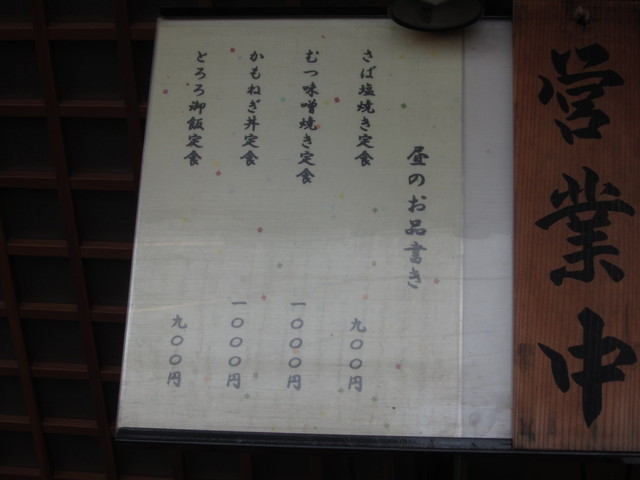 営業中
昼のお品書き
さば塩焼き定食 九〇〇円
むつ味噌焼き定食 一〇〇〇円
かもねぎ丼定食 一〇〇〇円
とろろ御飯定食 九〇〇円